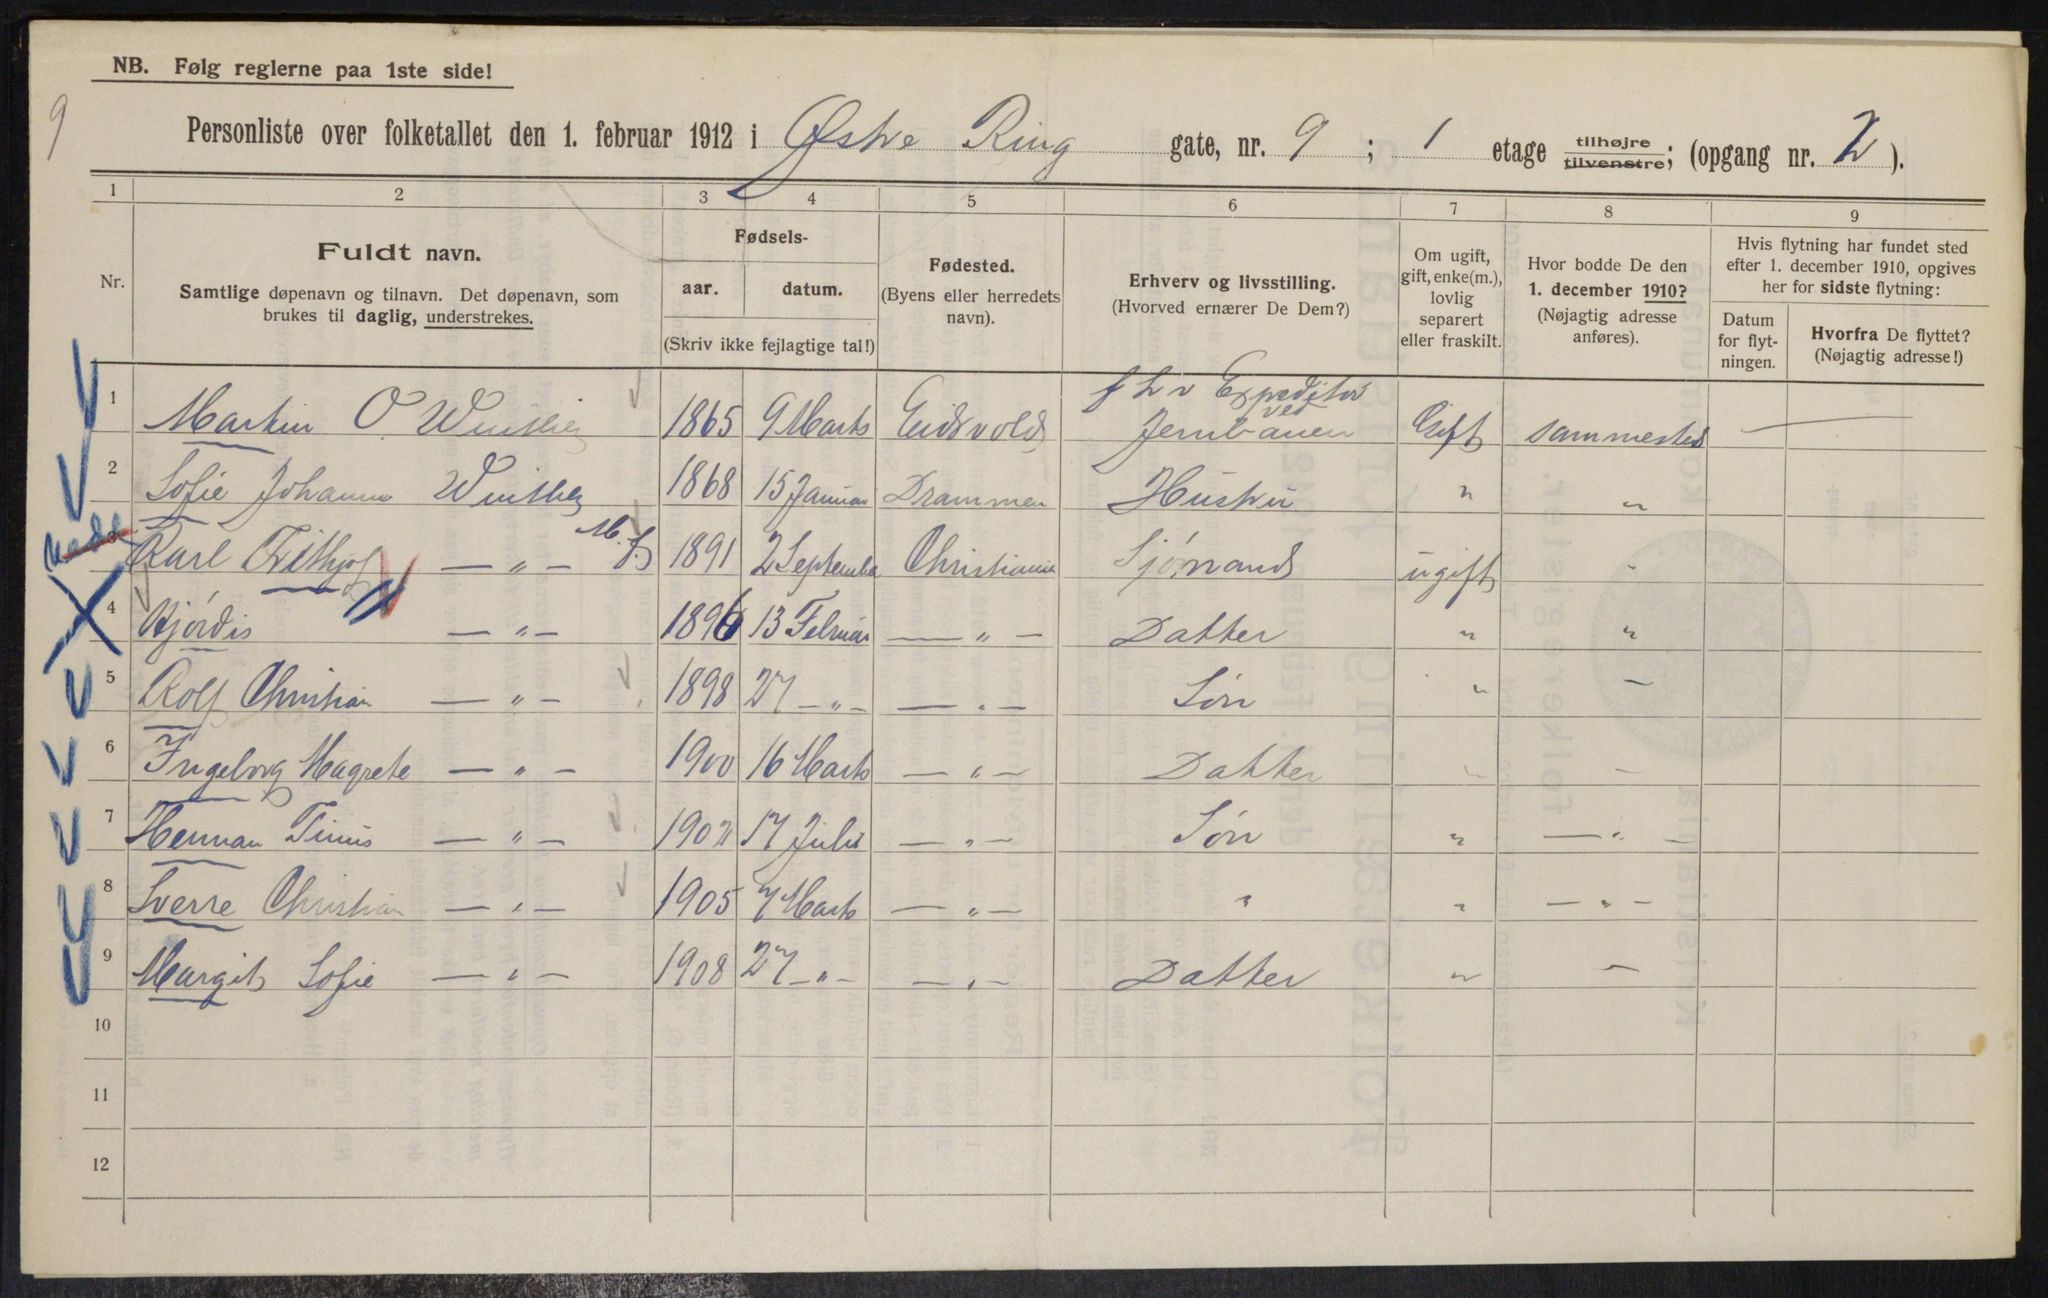 NB. Følg reglerne paa 1ste side!
9
Personliste over folketallet den 1. februar 1912 i Østre Ring gate, nr. 9 ; 1 etage tilhøjre tilvenstre; (opgang nr. 2 ).
1 2 3 4 5 6 7 8 9
Nr.
Fuldt navn.
Samtlige døpenavn og tilnavn. Det døpenavn, som
brukes til daglig, understrekes.
Fødsels-
aar. datum.
(Skriv ikke fejlagtige tal!)
Fødested.
(Byens eller herredets
navn).
Erhverv og livsstilling.
(Hvorved ernærer De Dem?)
Om ugift,
gift, enke(m.),
lovlig
separert
eller fraskilt.
Hvor bodde De den
1. december 1910?
(Nøjagtig adresse
anføres).
Hvis flytning har fundet sted
efter 1. december 1910, opgives
her for sidste flytning:
Datum
for flyt-
ningen.
Hvorfra De flyttet?
(Nøjagtig adresse!)
1 Martin O. Winther 1865 9 Marts Eidsvold Expeditør ved Jernbanen Gift sammested —
2 Sofie Johanne Winther 1868 15 Januar Drammen Hustru " "
3 Karl Fithjof — " — M. f. 1891 2 September Christiania Sjømand ugift "
4 Hjørdis — " — 1896 13 Februar — " — Datter " "
5 Rolf Christian — " — 1898 27 — " — — " — Søn " —
6 Ingeborg Magrete — " — 1900 16 Marts — " — Datter " —
7 Herman Tinius — " — 1902 17 Juli — " — Søn " — " —
8 Sverre Christian — " — 1905 7 Marts — " — " " — " —
9 Margit Sofie — " — 1908 27 — " — — " — Datter " —
10
11
12